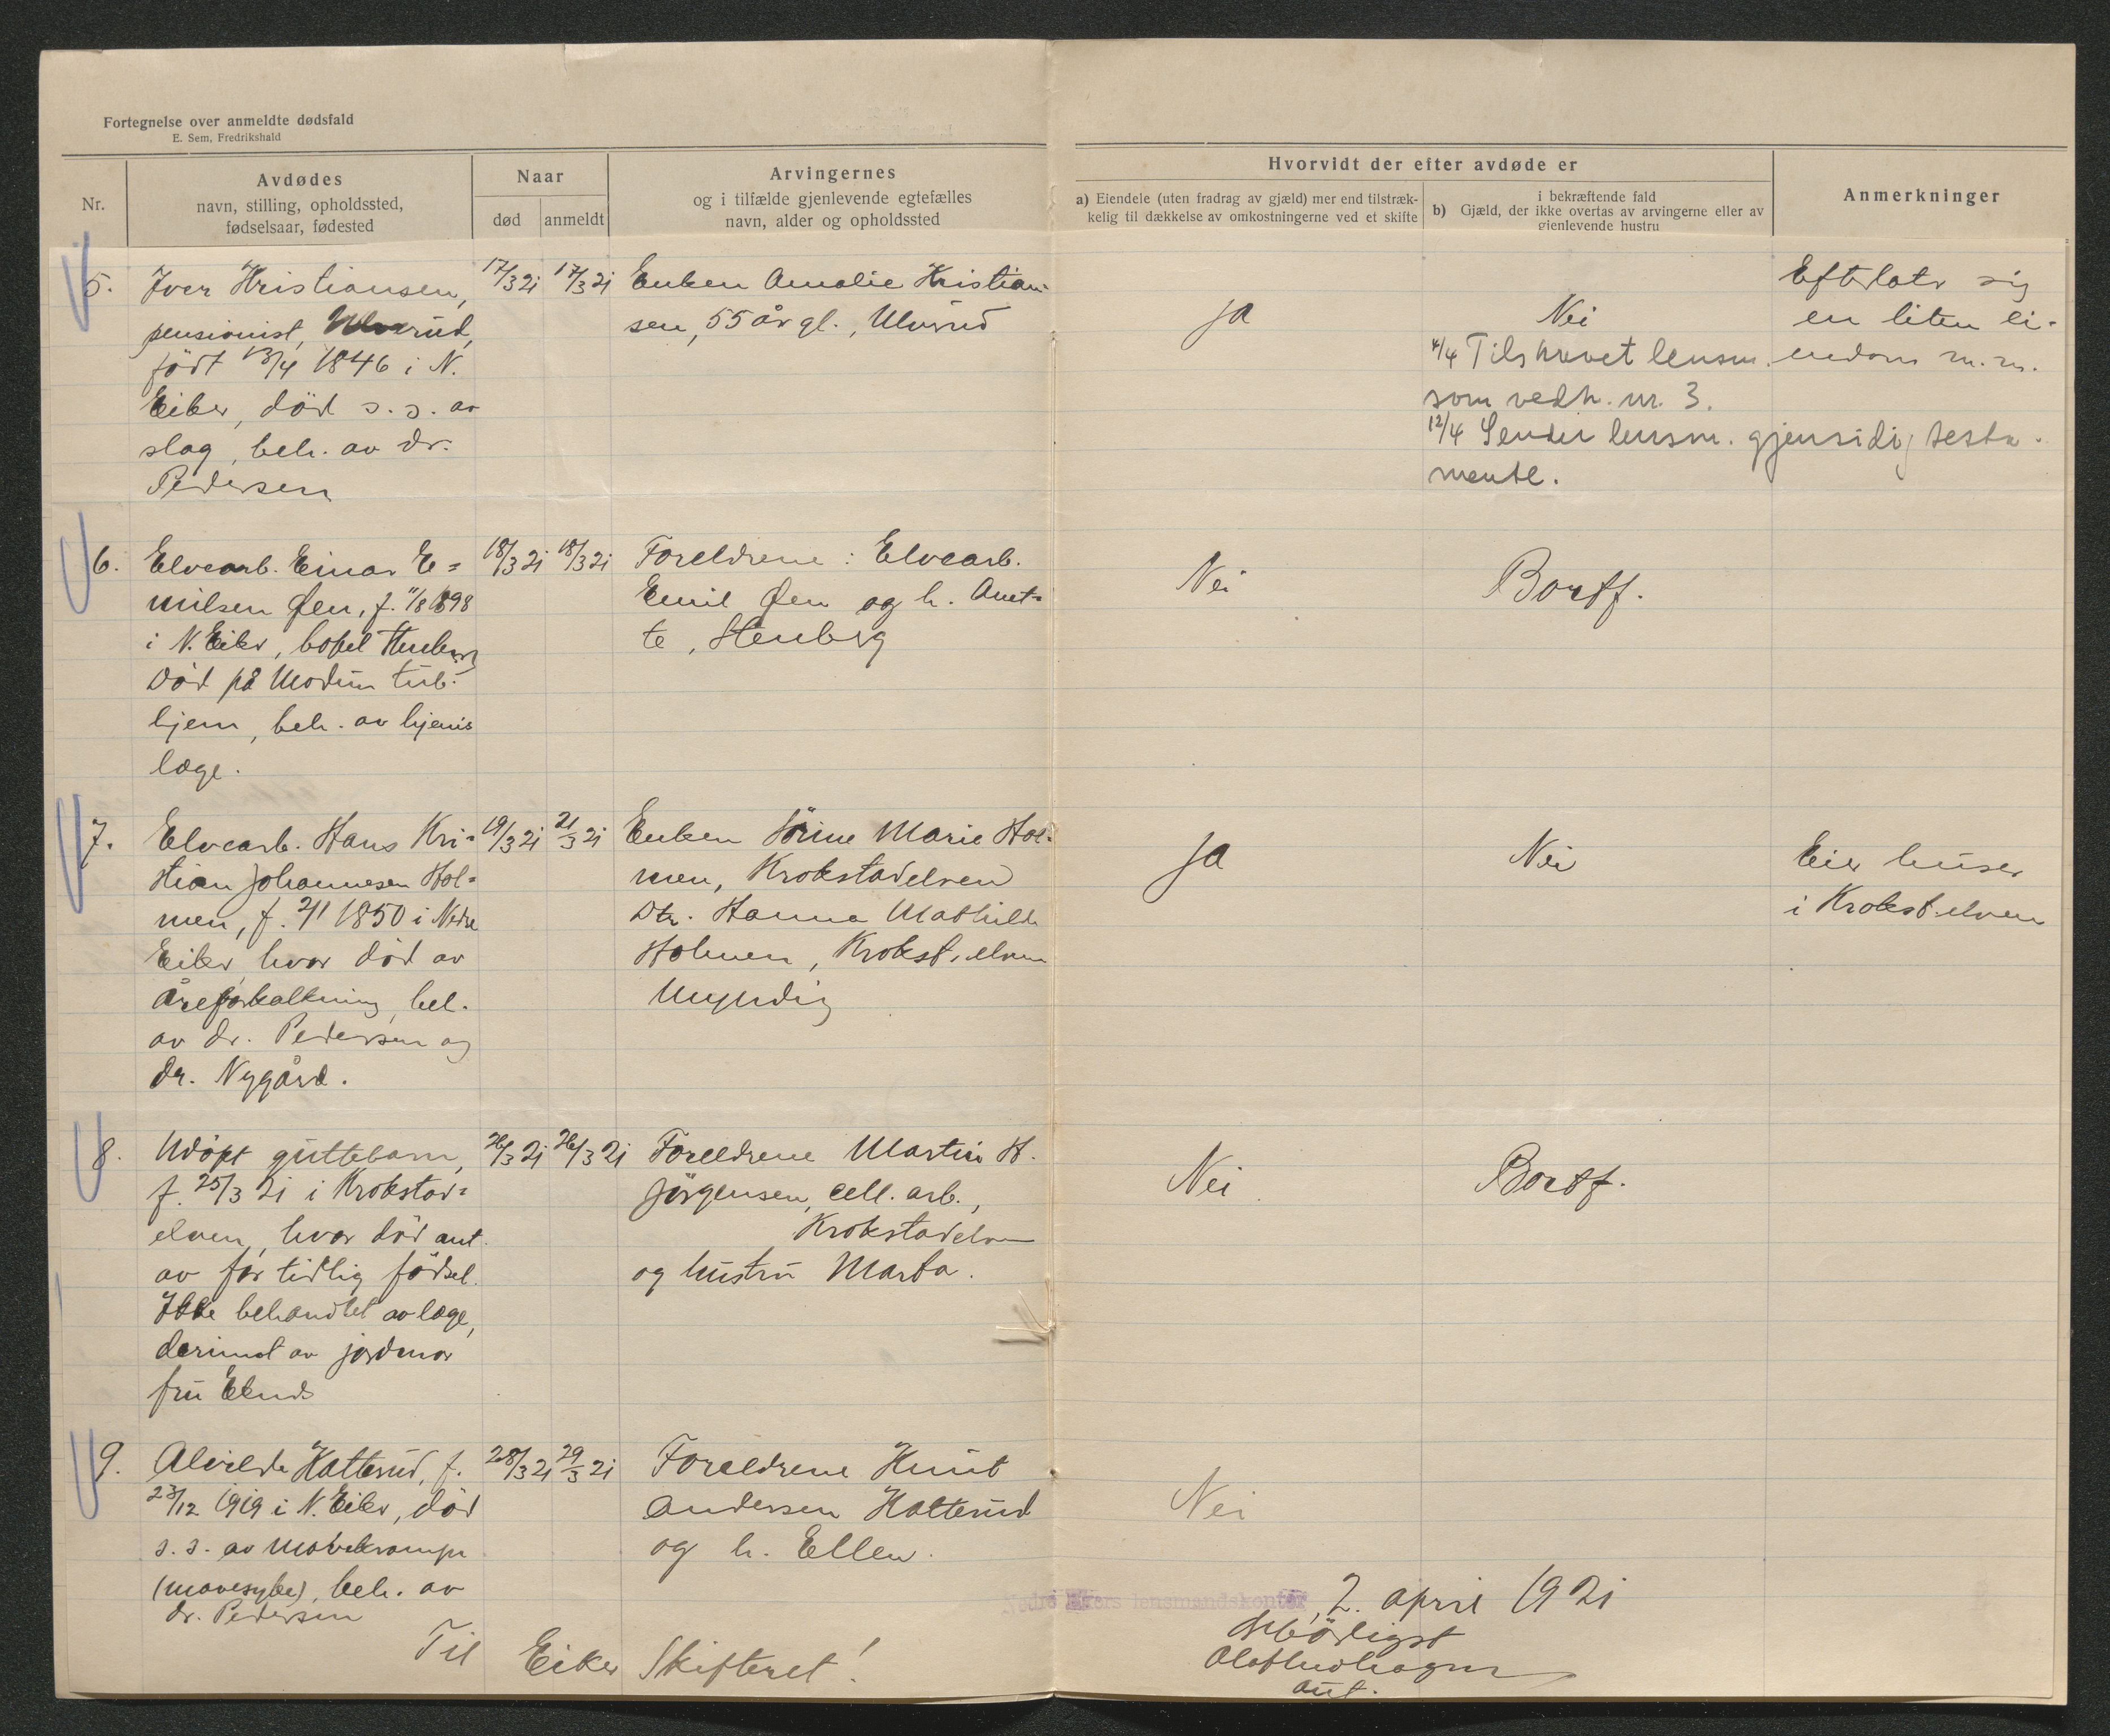 Fortegnelse over anmeldte dødsfald
E. Sem, Fredrikshald
Nr.
Avdødes
navn, stilling, opholdssted,
fødselsaar, fødested
Naar
død
anmeldt
Arvingernes
og i tilfælde gjenlevende egtefælles
navn, alder og opholdssted
Hvorvidt der efter avdøde er
a) Eiendele (uten fradrag av gjæld) mer end tilstræk-
kelig til dækkelse av omkostningerne ved et skifte
i bekræftende fald
b) Gjæld, der ikke overtas av arvingerne eller av
gjenlevende hustru
Anmerkninger
5.
Iver Kristiansen,
pensionist, Ulverud,
født 13/4 1846 i N.
Eiker, död s. s. av
slag, beh. av dr.
Pedersen
17/3 21
17/3 21
Enken Amalie Kristian-
sen, 55 år gl., Ulverud
ja
Nei
4/4 Tilskrevet lensm.
som vedk. nr. 3.
12/4 Sender lensm. gjensidig testa-
mente.
Efterlater sig
en liten ei-
endom m.m.
6.
Elvearb. Einar E=
milsen Øen, f. 11/8 1898
i N. Eiker, bopel Stenberg
Död på Modum tub.
hjem, beh. av hjemis
læge.
18/3 21
18/3 21
Foreldrene : Elvearb.
Emil Øen og h. Anet=
te, Stenberg
Nei
Bortf.
7.
Elvearb. Hans Kri=
stian Johannesen Hol=
men, f. 2/1 1850 i Nedre
Eiker, hvor död av
åreforkalkning, beh.
av dr. Pedersen og
dr. Nygård.
19/3 21
21/3 21
Enken Sörine Marie Hol=
men, Krokstadelven
Dtr. Hanna Mathilde
Holmen, Krokst.elven
Umyndig
Ja
Nei
Eier huser
i Krokst.elven
8.
Udöpt guttebarn,
f. 25/3 21 i Krokstad=
elven, hvor död ant.
av for tidlig födsel.
Ikke behandlet av læge,
derimot av jordmor
fru
26/3 21
26/3 21
Foreldrene Martin H.
Jörgensen, cell. arb.,
Krokstadelven
og hustru Marta.
Nei
Bortf.
9.
Alvilde Hatterud, f.
23/12 1919 i N. Eiker, död
s. s. av mavekrampe
(mavesyke), beh. av
dr. Pedersen
28/3 21
29/3 21
Foreldrene Knut
Andersen Hatterud
og h. Ellen.
Nei
Til Eiker Skifteret!
Nedre Ekers lensmandskontor, 2. april 1921
Ærbödigst
aut.